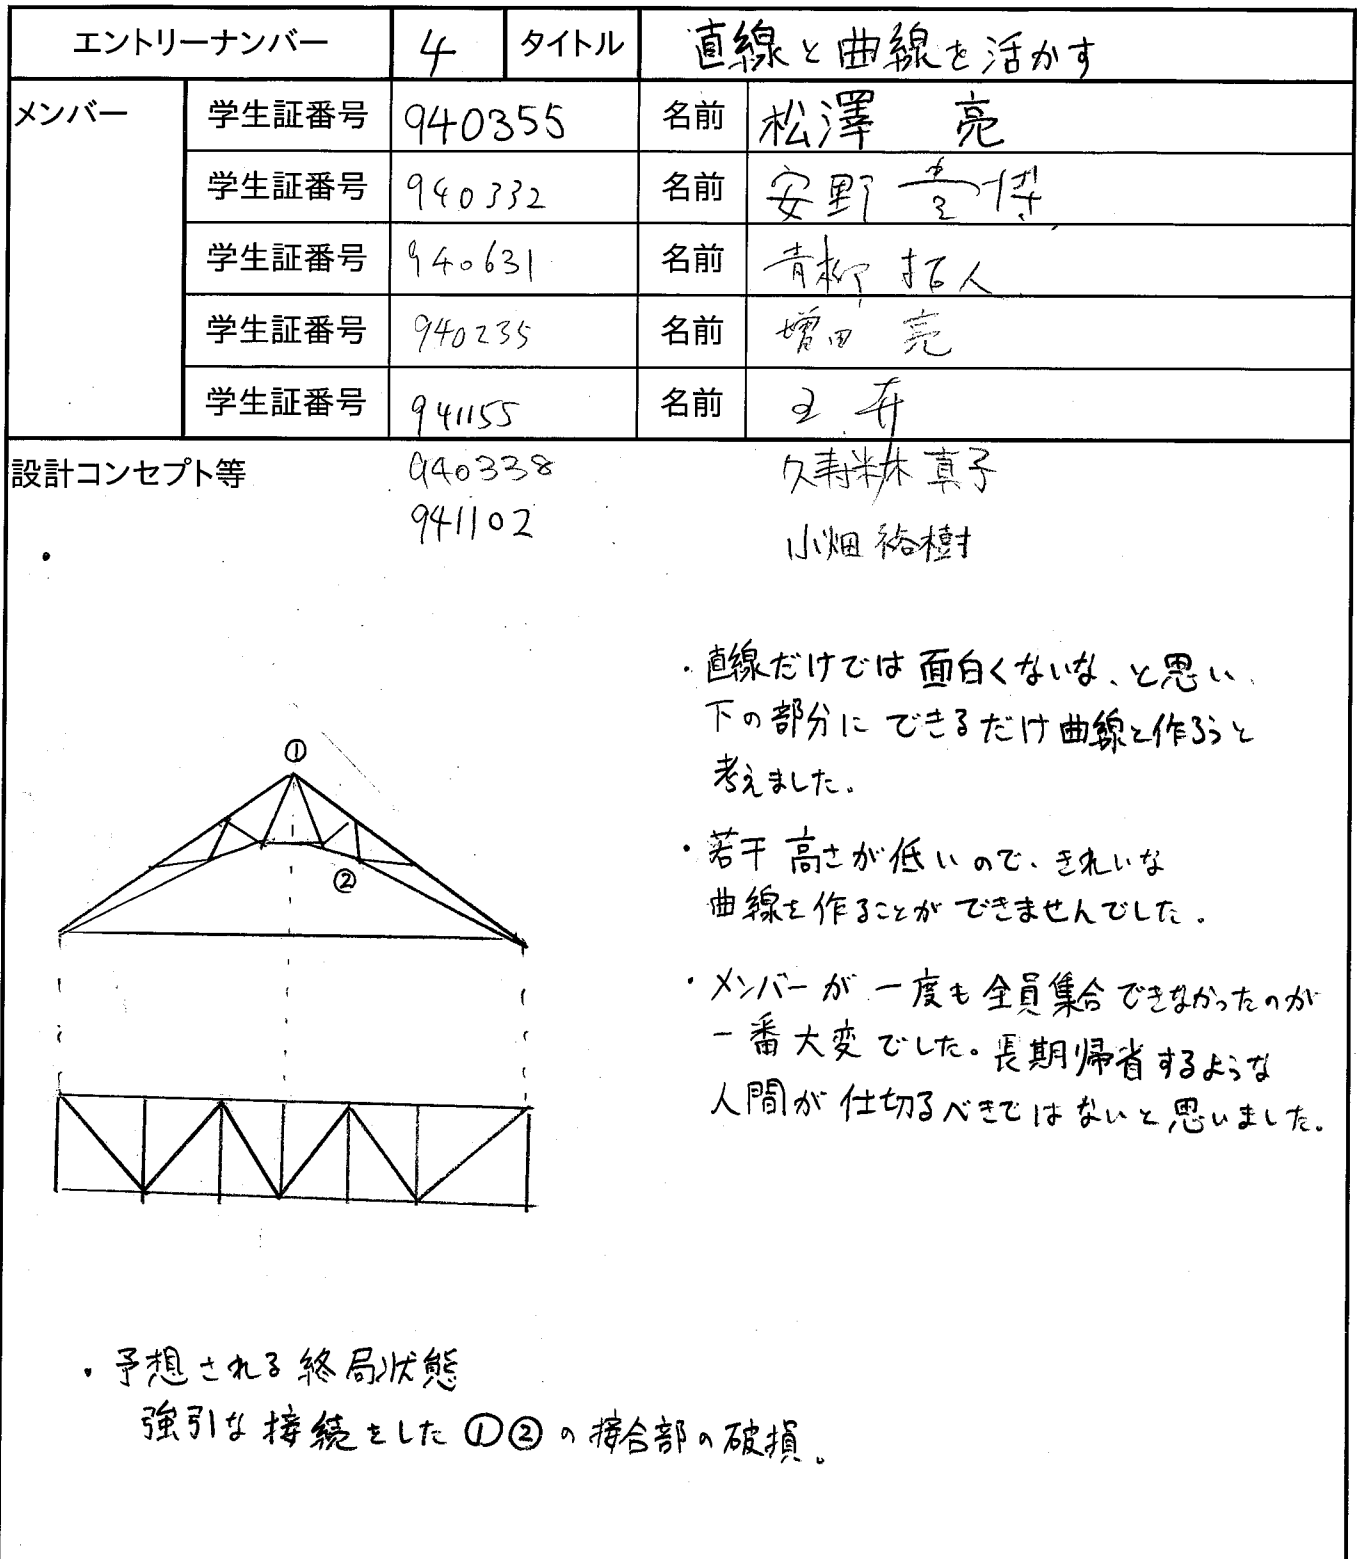 エントリーナンバー 4 タイトル 直線と曲線を活かす
メンバー 学生証番号 940355 名前 松澤 亮
学生証番号 940332 名前 安野
学生証番号 940631 名前 青柳 拓人
学生証番号 940235 名前 増田 亮
学生証番号 941155 名前 王
設計コンセプト等 940338 久寿米木 真子
941102 小畑 裕樹
・直線だけでは面白くないな、と思い、
下の部分にできるだけ曲線を作ろうと
考えました。
・若干高さが低いので、きれいな
曲線を作ることができませんでした。
・メンバーが一度も全員集合できなかったのが
一番大変でした。長期帰省するような
人間が仕切るべきではないと思いました。
①
②
・予想される終局状態
強引な接続をした①②の接合部の破損。